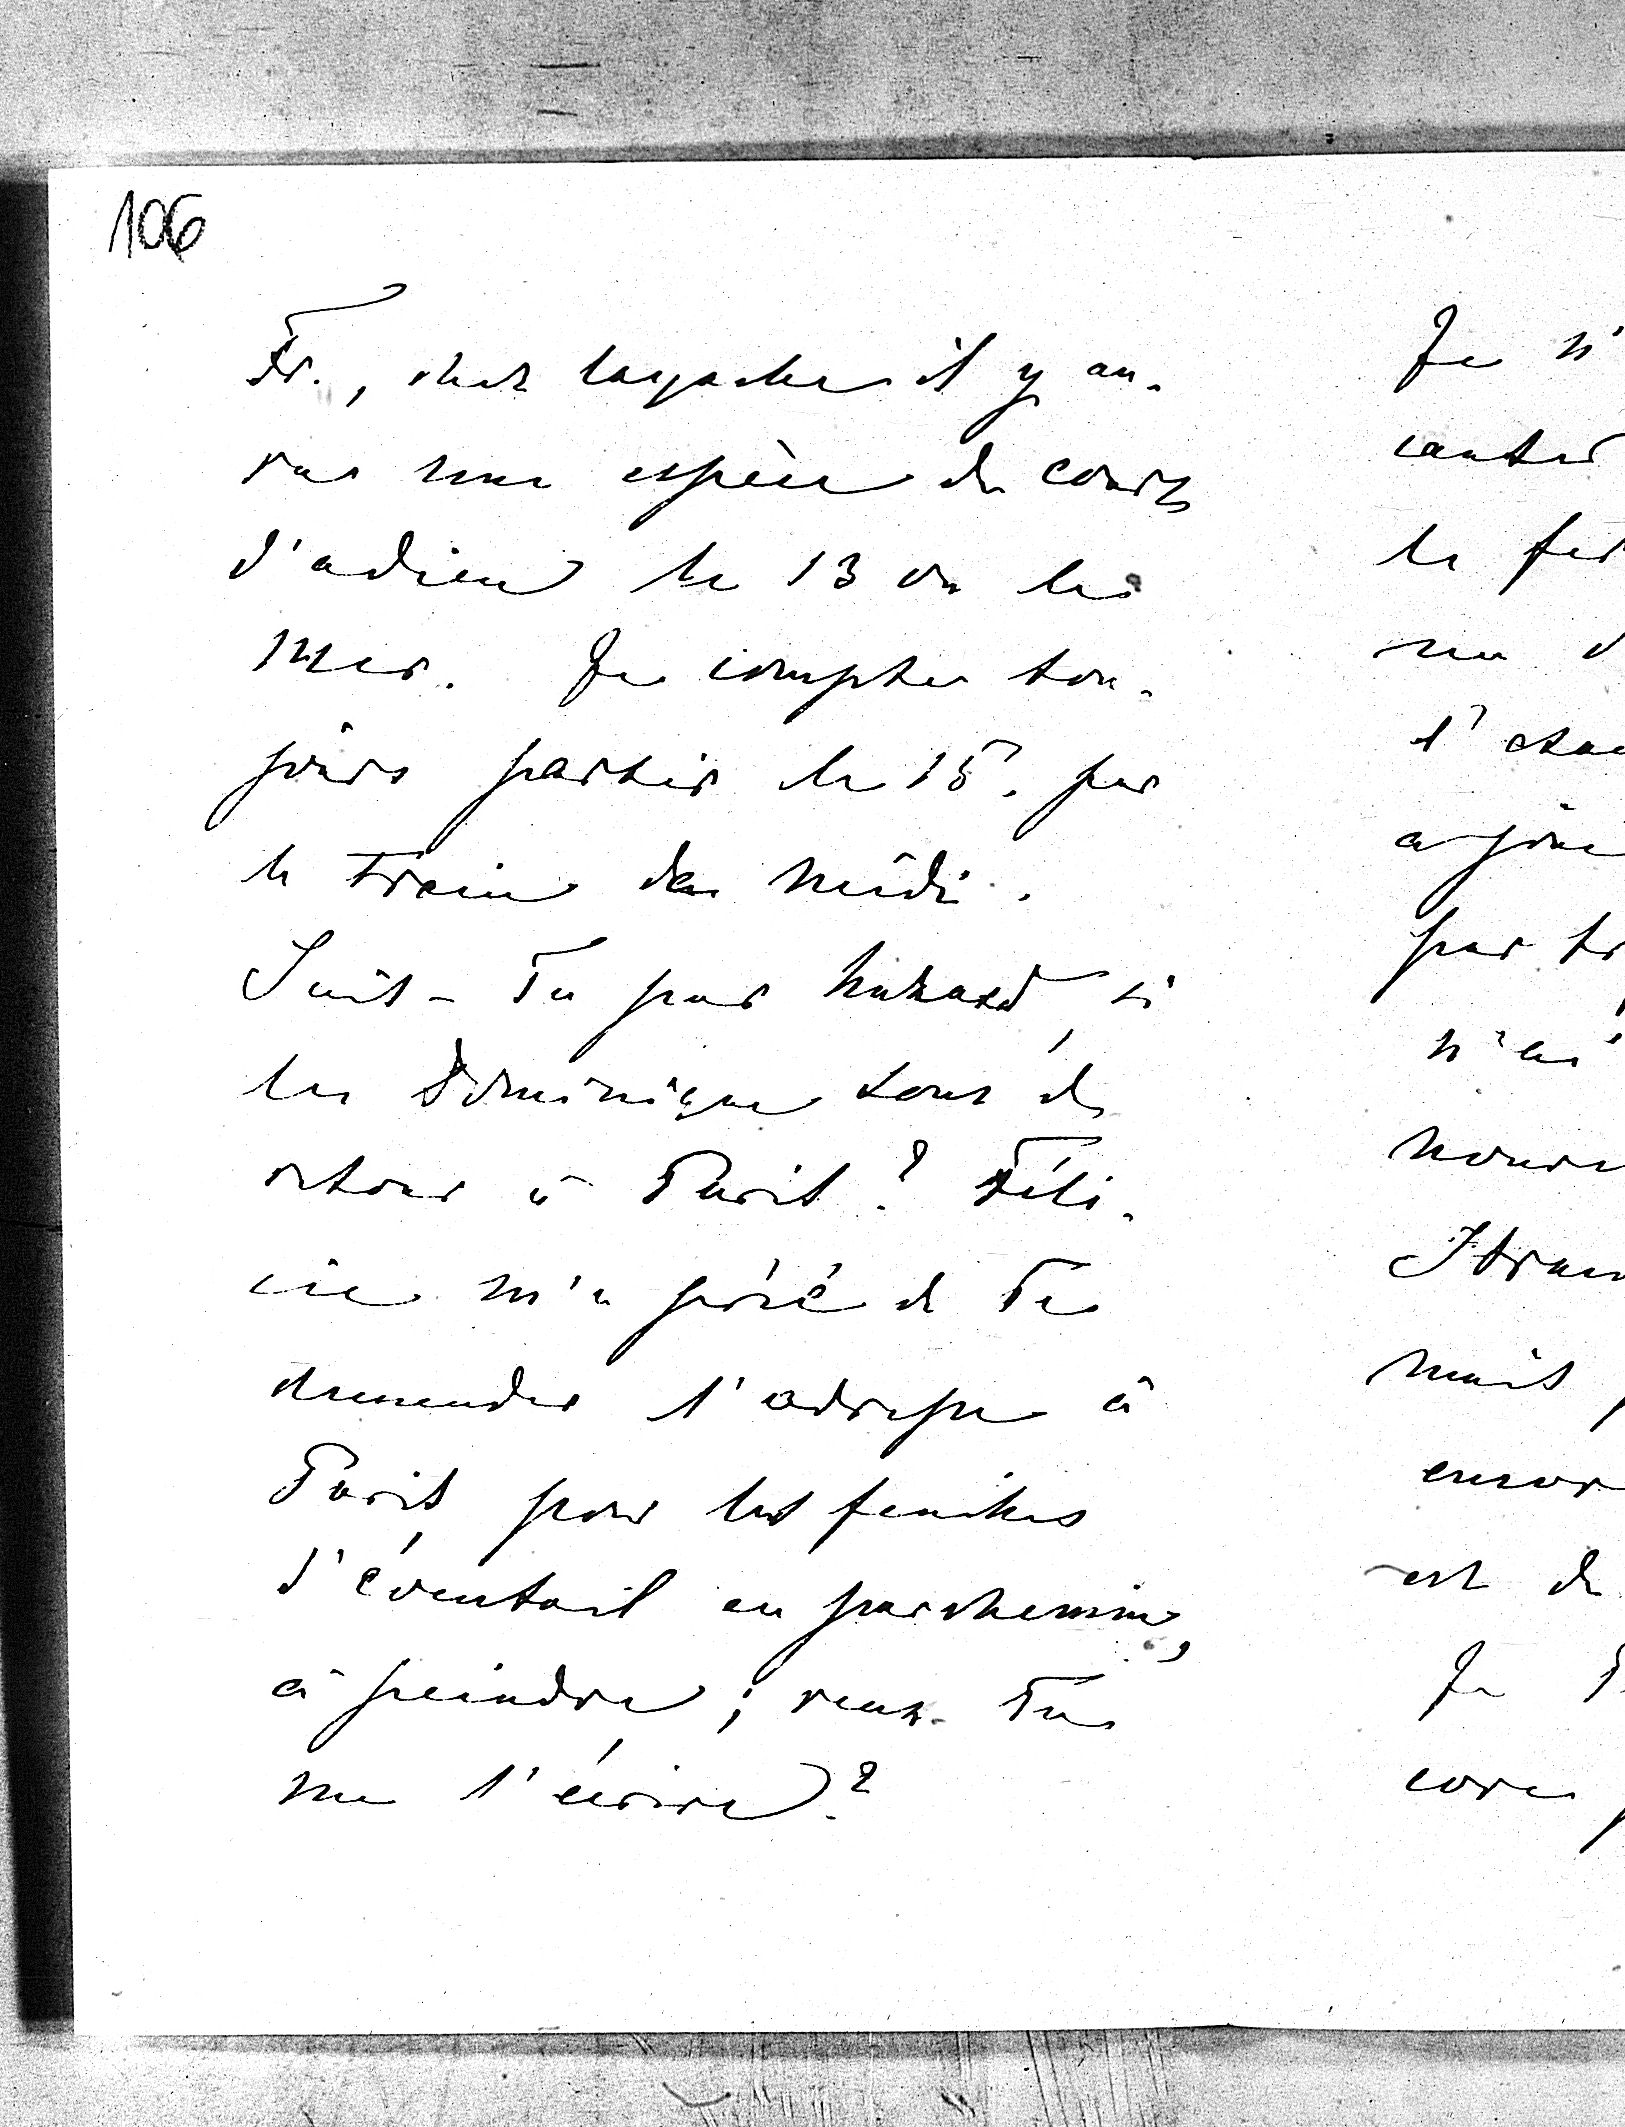 106
Fr., chez Layache il y au-
ra une espèce de cours
d'adieu le 13 ou le
mer. Je compte tou-
jours partir le 15. par
le train de midi.
Sais-Tu par hasard, si
les Dominique sont de
retour à Paris? Féli-
cie m'a prié de Te
demander l'adresse à
Paris pour les feuilles
d'éventail en parchemin,
à peindre; veux-Tu
me l'écrire?
Je n'
la
l'
par
n'ai
mais
encor
est de
Je
core